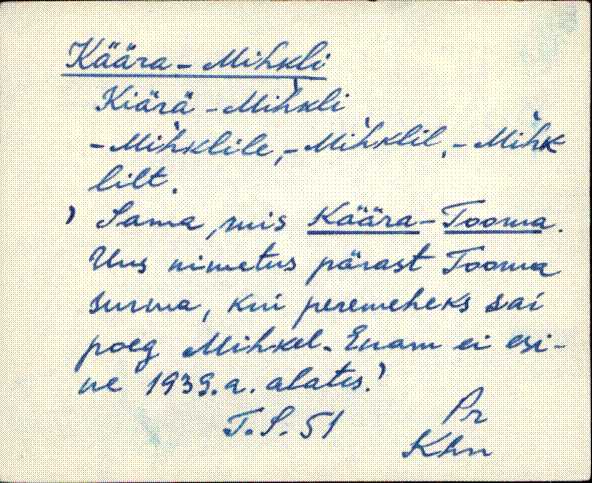 Käära-Mihkli
Kiärä-Mìhkli
-Mìhklile, -Mìhklil, -Mìhk
lilt.
) Sama, mis Käära-Tooma.
Uus nimetus pärast Tooma
surma, kui peremeheks sai
poeg Mihkel. Enam ei esi-
ne 1939.a. alates.)
T.S. 51 Pr
Khn